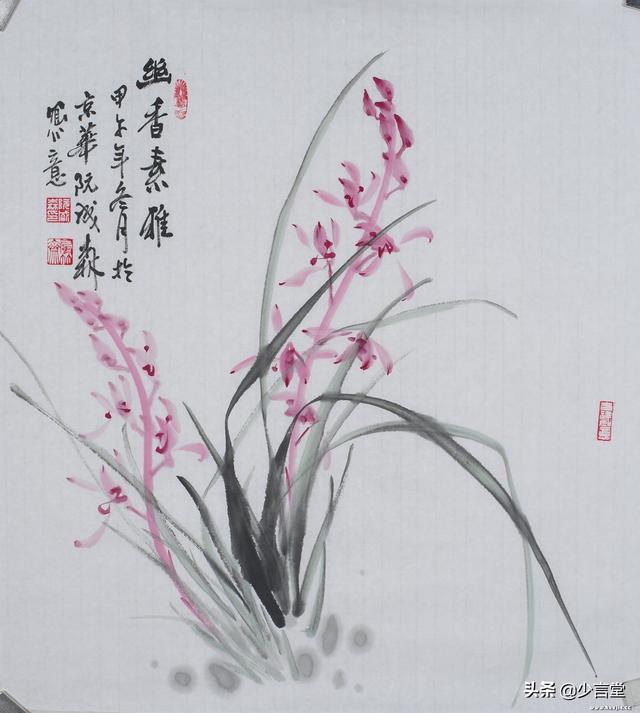 幽香素雅
甲午年冬月於
京華阮成森
头条 @少言堂